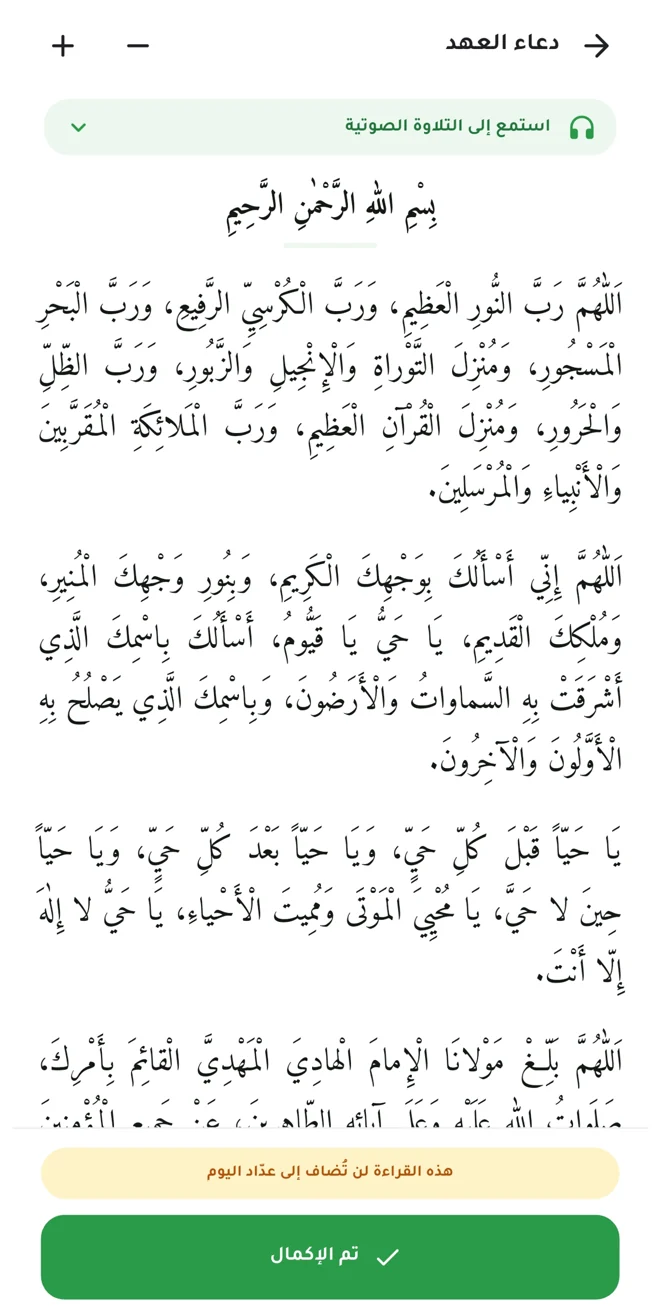 دعاء العهد
استمع إلى التلاوة الصوتية
بِسْمِ اللهِ الرَّحْمٰنِ الرَّحِيمِ
اَللّٰهُمَّ رَبَّ النُّورِ الْعَظِيمِ، وَرَبَّ الْكُرْسِيِّ الرَّفِيعِ، وَرَبَّ الْبَحْرِ
الْمَسْجُورِ، وَمُنْزِلَ التَّوْراةِ وَالْإِنْجِيلِ وَالزَّبُورِ، وَرَبَّ الظِّلِّ
وَالْحَرُورِ، وَمُنْزِلَ الْقُرْآنِ الْعَظِيمِ، وَرَبَّ الْمَلائِكَةِ الْمُقَرَّبِينَ
وَالْأَنْبِياءِ وَالْمُرْسَلِينَ.
اَللّٰهُمَّ إِنِّي أَسْأَلُكَ بِوَجْهِكَ الْكَرِيمِ، وَبِنُورِ وَجْهِكَ الْمُنِيرِ،
وَمُلْكِكَ الْقَدِيمِ، يَا حَيُّ يَا قَيُّومُ، أَسْأَلُكَ بِاسْمِكَ الَّذِي
أَشْرَقَتْ بِهِ السَّماواتُ وَالْأَرَضُونَ، وَبِاسْمِكَ الَّذِي يَصْلُحُ بِهِ
الْأَوَّلُونَ وَالْآخِرُونَ.
يَا حَيّاً قَبْلَ كُلِّ حَيٍّ، وَيَا حَيّاً بَعْدَ كُلِّ حَيٍّ، وَيَا حَيّاً
حِينَ لا حَيَّ، يَا مُحْيِيَ الْمَوْتَى وَمُمِيتَ الْأَحْياءِ، يَا حَيُّ لا إِلٰهَ
إِلّا أَنْتَ.
اَللّٰهُمَّ بَلِّغْ مَوْلانَا الْإِمامَ الْهادِيَ الْمَهْدِيَّ الْقائِمَ بِأَمْرِكَ،
صَلَواتُ اللهِ عَلَيْهِ وَعَلَى آبائِهِ الطّاهِرِينَ، عَنْ جَمِيعِ الْمُؤْمِنِينَ
هذه القراءة لن تُضاف إلى عدّاد اليوم
تم الإكمال